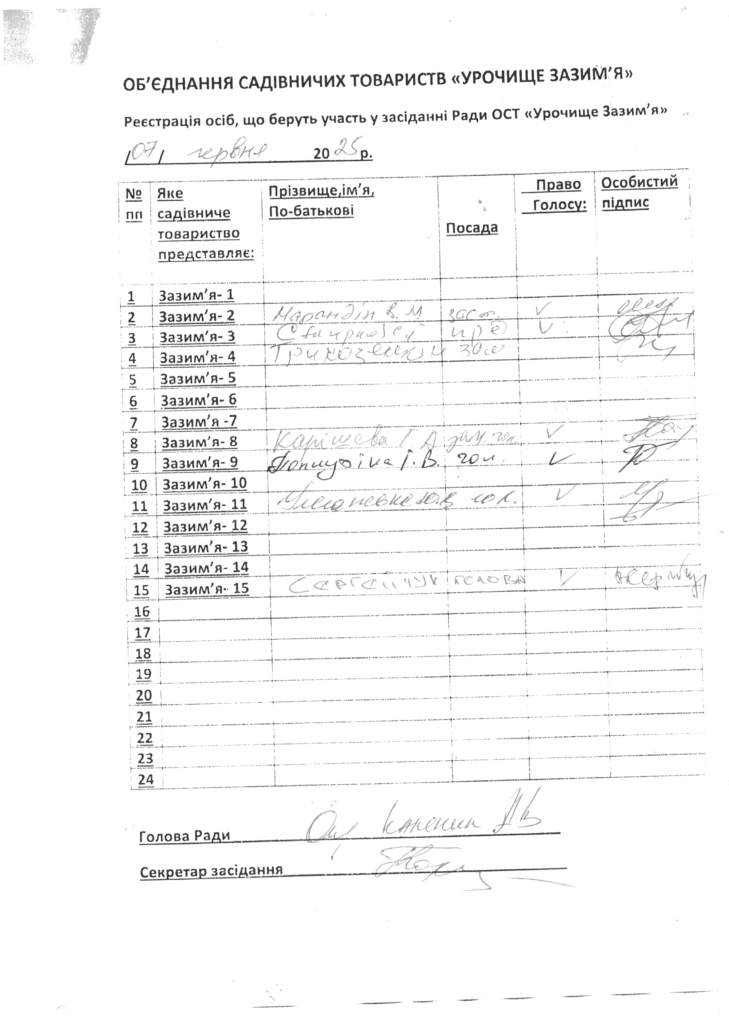 ОБ'ЄДНАННЯ САДІВНИЧИХ ТОВАРИСТВ «УРОЧИЩЕ ЗАЗИМ'Я»
Реєстрація осіб, що беруть участь у засіданні Ради ОСТ «Урочище Зазим'я»
07 червня 2025р.
№ пп Яке садівниче товариство представляє: Прізвище,ім'я, По-батькові Посада Право Голосу: Особистий підпис
1 Зазим'я- 1
2 Зазим'я- 2 В. М заст. V
3 Зазим'я- 3 V
4 Зазим'я- 4 зам
5 Зазим'я- 5
6 Зазим'я- 6
7 Зазим'я -7
8 Зазим'я- 8 Г. А V
9 Зазим'я- 9 Г. В. гол. V
10 Зазим'я- 10
11 Зазим'я- 11 гол. V
12 Зазим'я- 12
13 Зазим'я- 13
14 Зазим'я- 14
15 Зазим'я- 15 Сергейчук голова V
16
17
18
19
20
21
22
23
24
Голова Ради
Секретар засідання